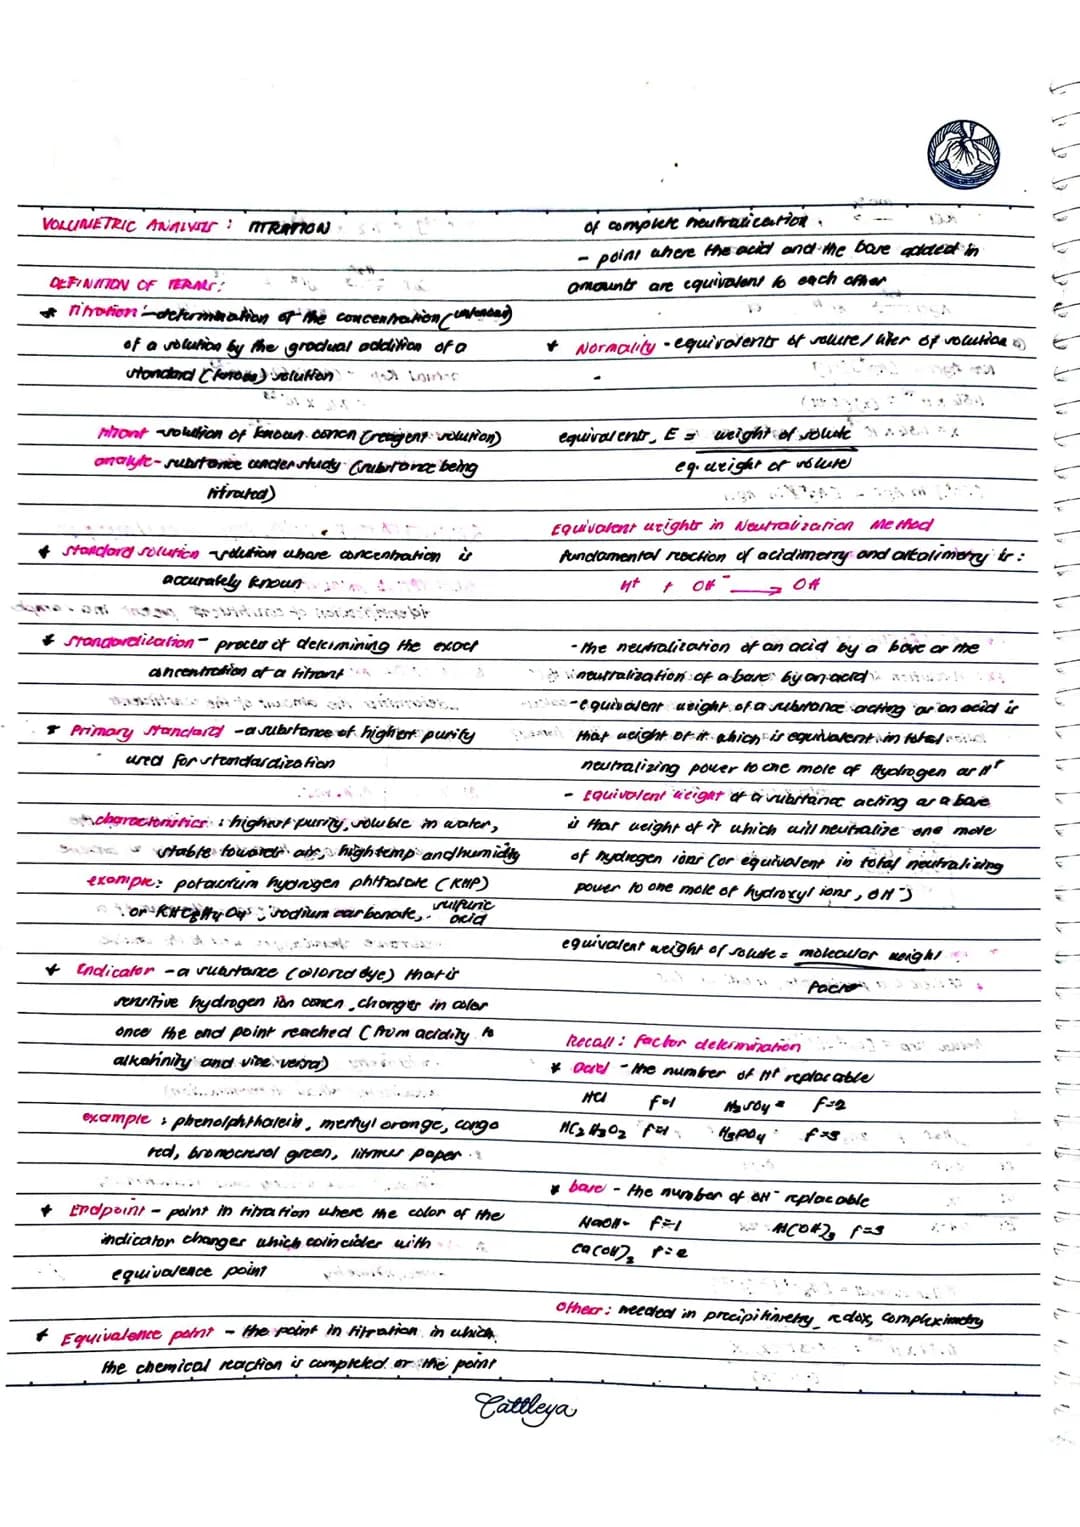 VOLUMETRIC ANALYSIS : TITRATION
DEFINITION OF TERMS:
* Titration - determination of the concentration (unknown)
of a solution by the gradual addition of a
standard (known) solution
titrant - solution of known concn (reagent solution)
analyte - substance under study (substance being
titrated)
* standard solution - solution whose concentration is
accurately known
* Standardization - process of determining the exact
concentration of a titrant
* Primary Standard - a substance of highest purity
used for standardization
characteristics : highest purity, soluble in water,
stable towards air, high temp and humidity
example: potassium hydrogen phthalate (KHP)
or KHC8H4O4, sodium carbonate, sulfuric acid
* Indicator - a substance (colored dye) that is
sensitive hydrogen ion concn, changes in color
once the end point reached (from acidity to
alkalinity and vice versa)
example : phenolphthalein, methyl orange, congo
red, bromocresol green, litmus paper
* Endpoint - point in titration where the color of the
indicator changes which coincides with
equivalence point
* Equivalence point - the point in titration in which
the chemical reaction is completed or the point
of complete neutralization.
- point where the acid and the base added in
amounts are equivalent to each other
* Normality - equivalents of solute / liter of solution
-
equivalents, E = weight of solute
eq. weight of solute
Equivalent weights in Neutralization Method
Fundamental reaction of acidimetry and alkalimetry is :
H+ + OH- → OH
- the neutralization of an acid by a base or the
neutralization of a base by an acid
- equivalent weight of a substance acting as an acid is
that weight of it which is equivalent in total
neutralizing power to one mole of Hydrogen as H+
- Equivalent weight of a substance acting as a base
is that weight of it which will neutralize one mole
of hydrogen ions (or equivalent in total neutralizing
power to one mole of hydroxyl ions, OH-)
equivalent weight of solute = molecular weight
Factor
Recall : Factor determination
* acid - the number of H+ replacable
HCl f=1 H2SO4 = f=2
HC2H3O2 f=1 H3PO4 f=3
* base - the number of OH- replacable
NaOH - f=1 Al(OH)3 f=3
Ca(OH)2 f=2
Others : needed in precipitimetry, redox, compleximetry
Cattleya